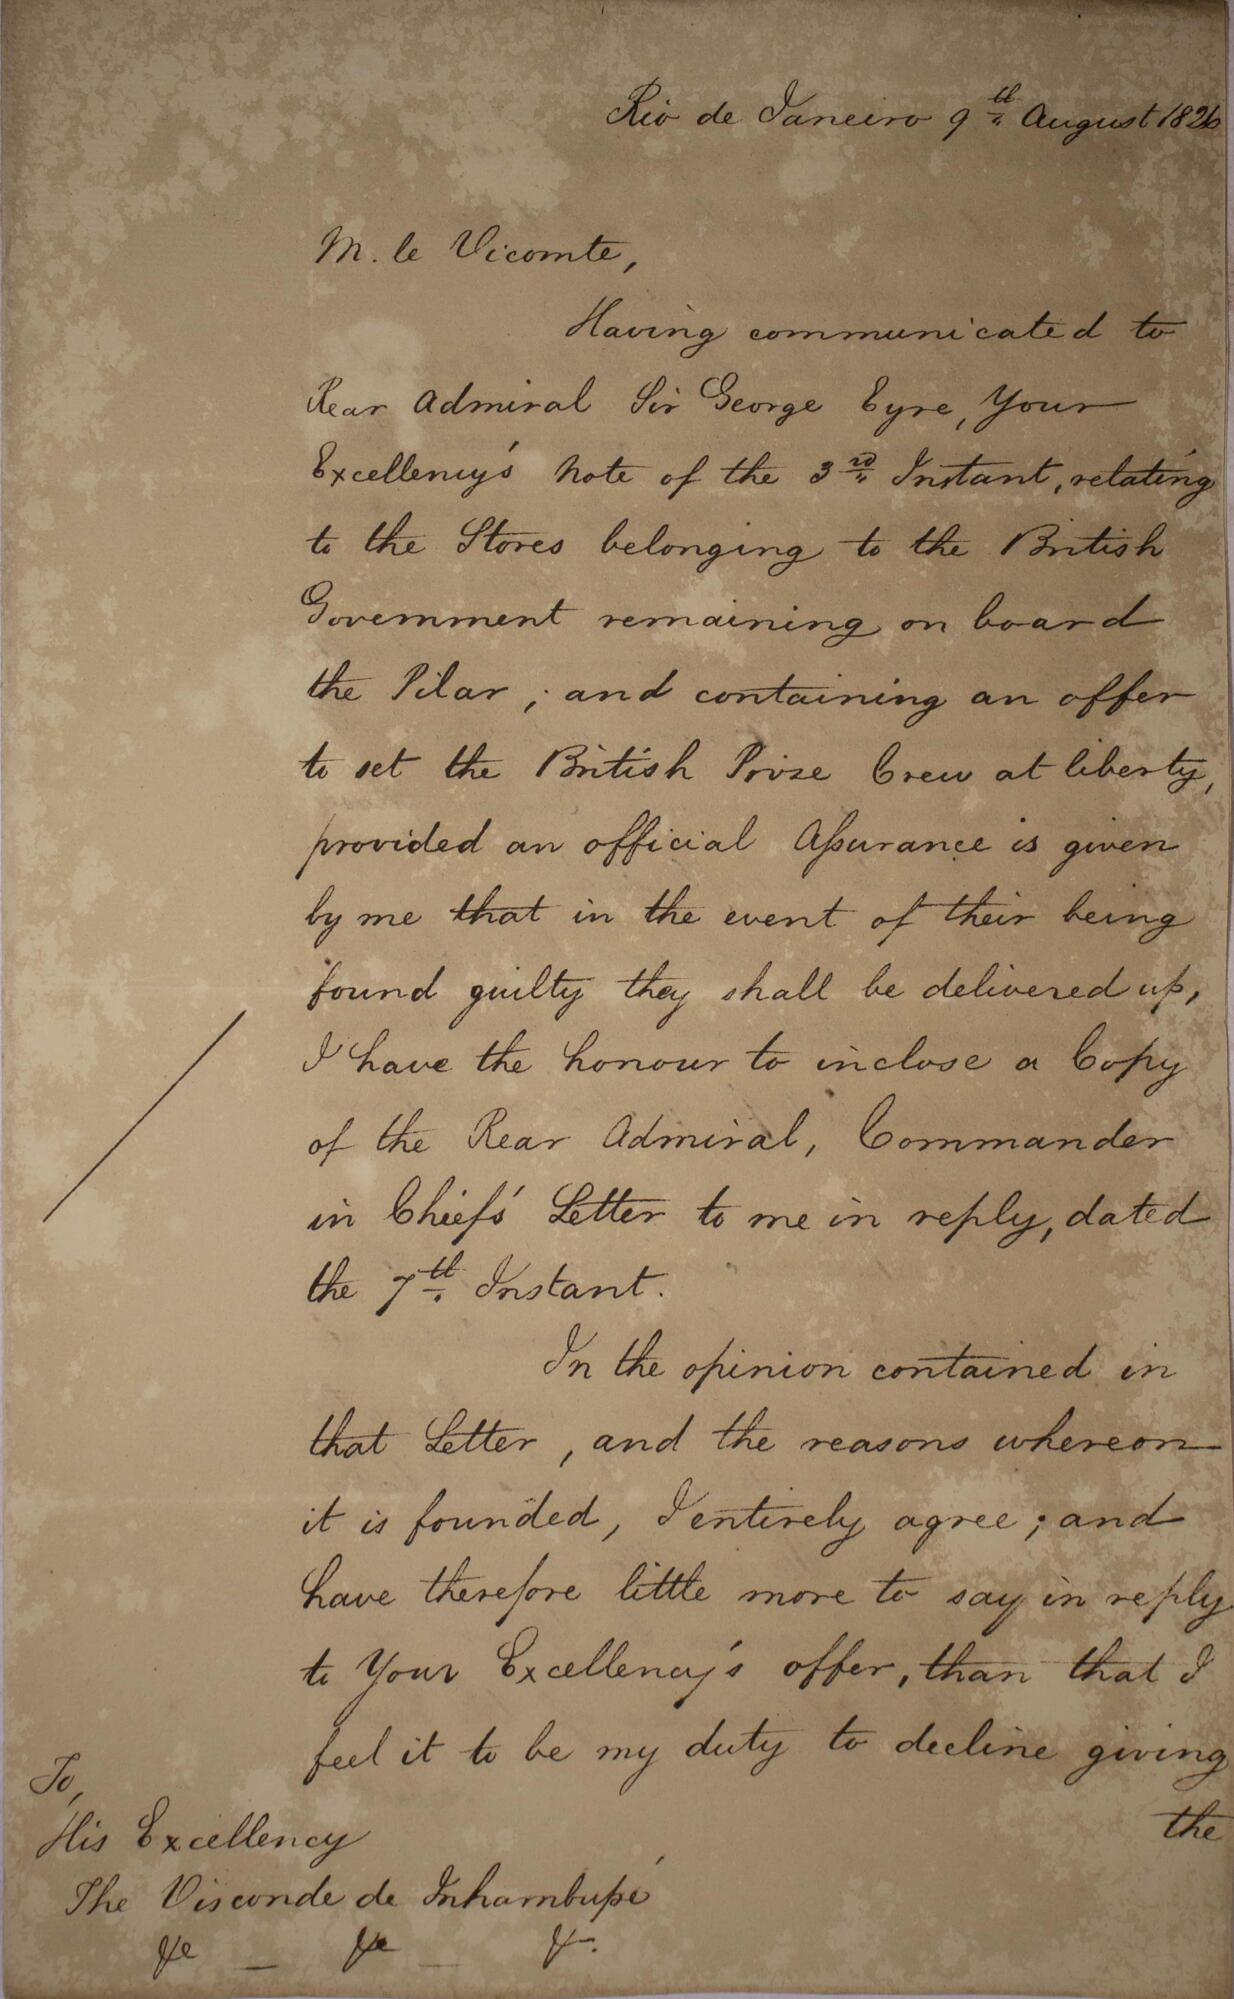 Rio de Janeiro 9th August 1826
M. le Vicomte,
Having communicated to
Rear Admiral Sir George Eyre, Your
Excellency's Note of the 3rd Instant, relating
to the Stores belonging to the British
Government remaining on board
the Pilar; and containing an offer
to set the British Prize Crew at liberty,
provided an official Assurance is given
by me that in the event of their being
found guilty they shall be delivered up,
I have the honour to inclose a Copy
of the Rear Admiral, Commander
in Chief's Letter to me in reply, dated
the 7th Instant.
In the opinion contained in
that Letter, and the reasons whereon
it is founded, I entirely agree; and
have therefore little more to say in reply
to Your Excellency's offer, than that I
feel it to be my duty to decline giving
the
To,
His Excellency
The Visconde de Inhambupé
&c _ &c _ &c.